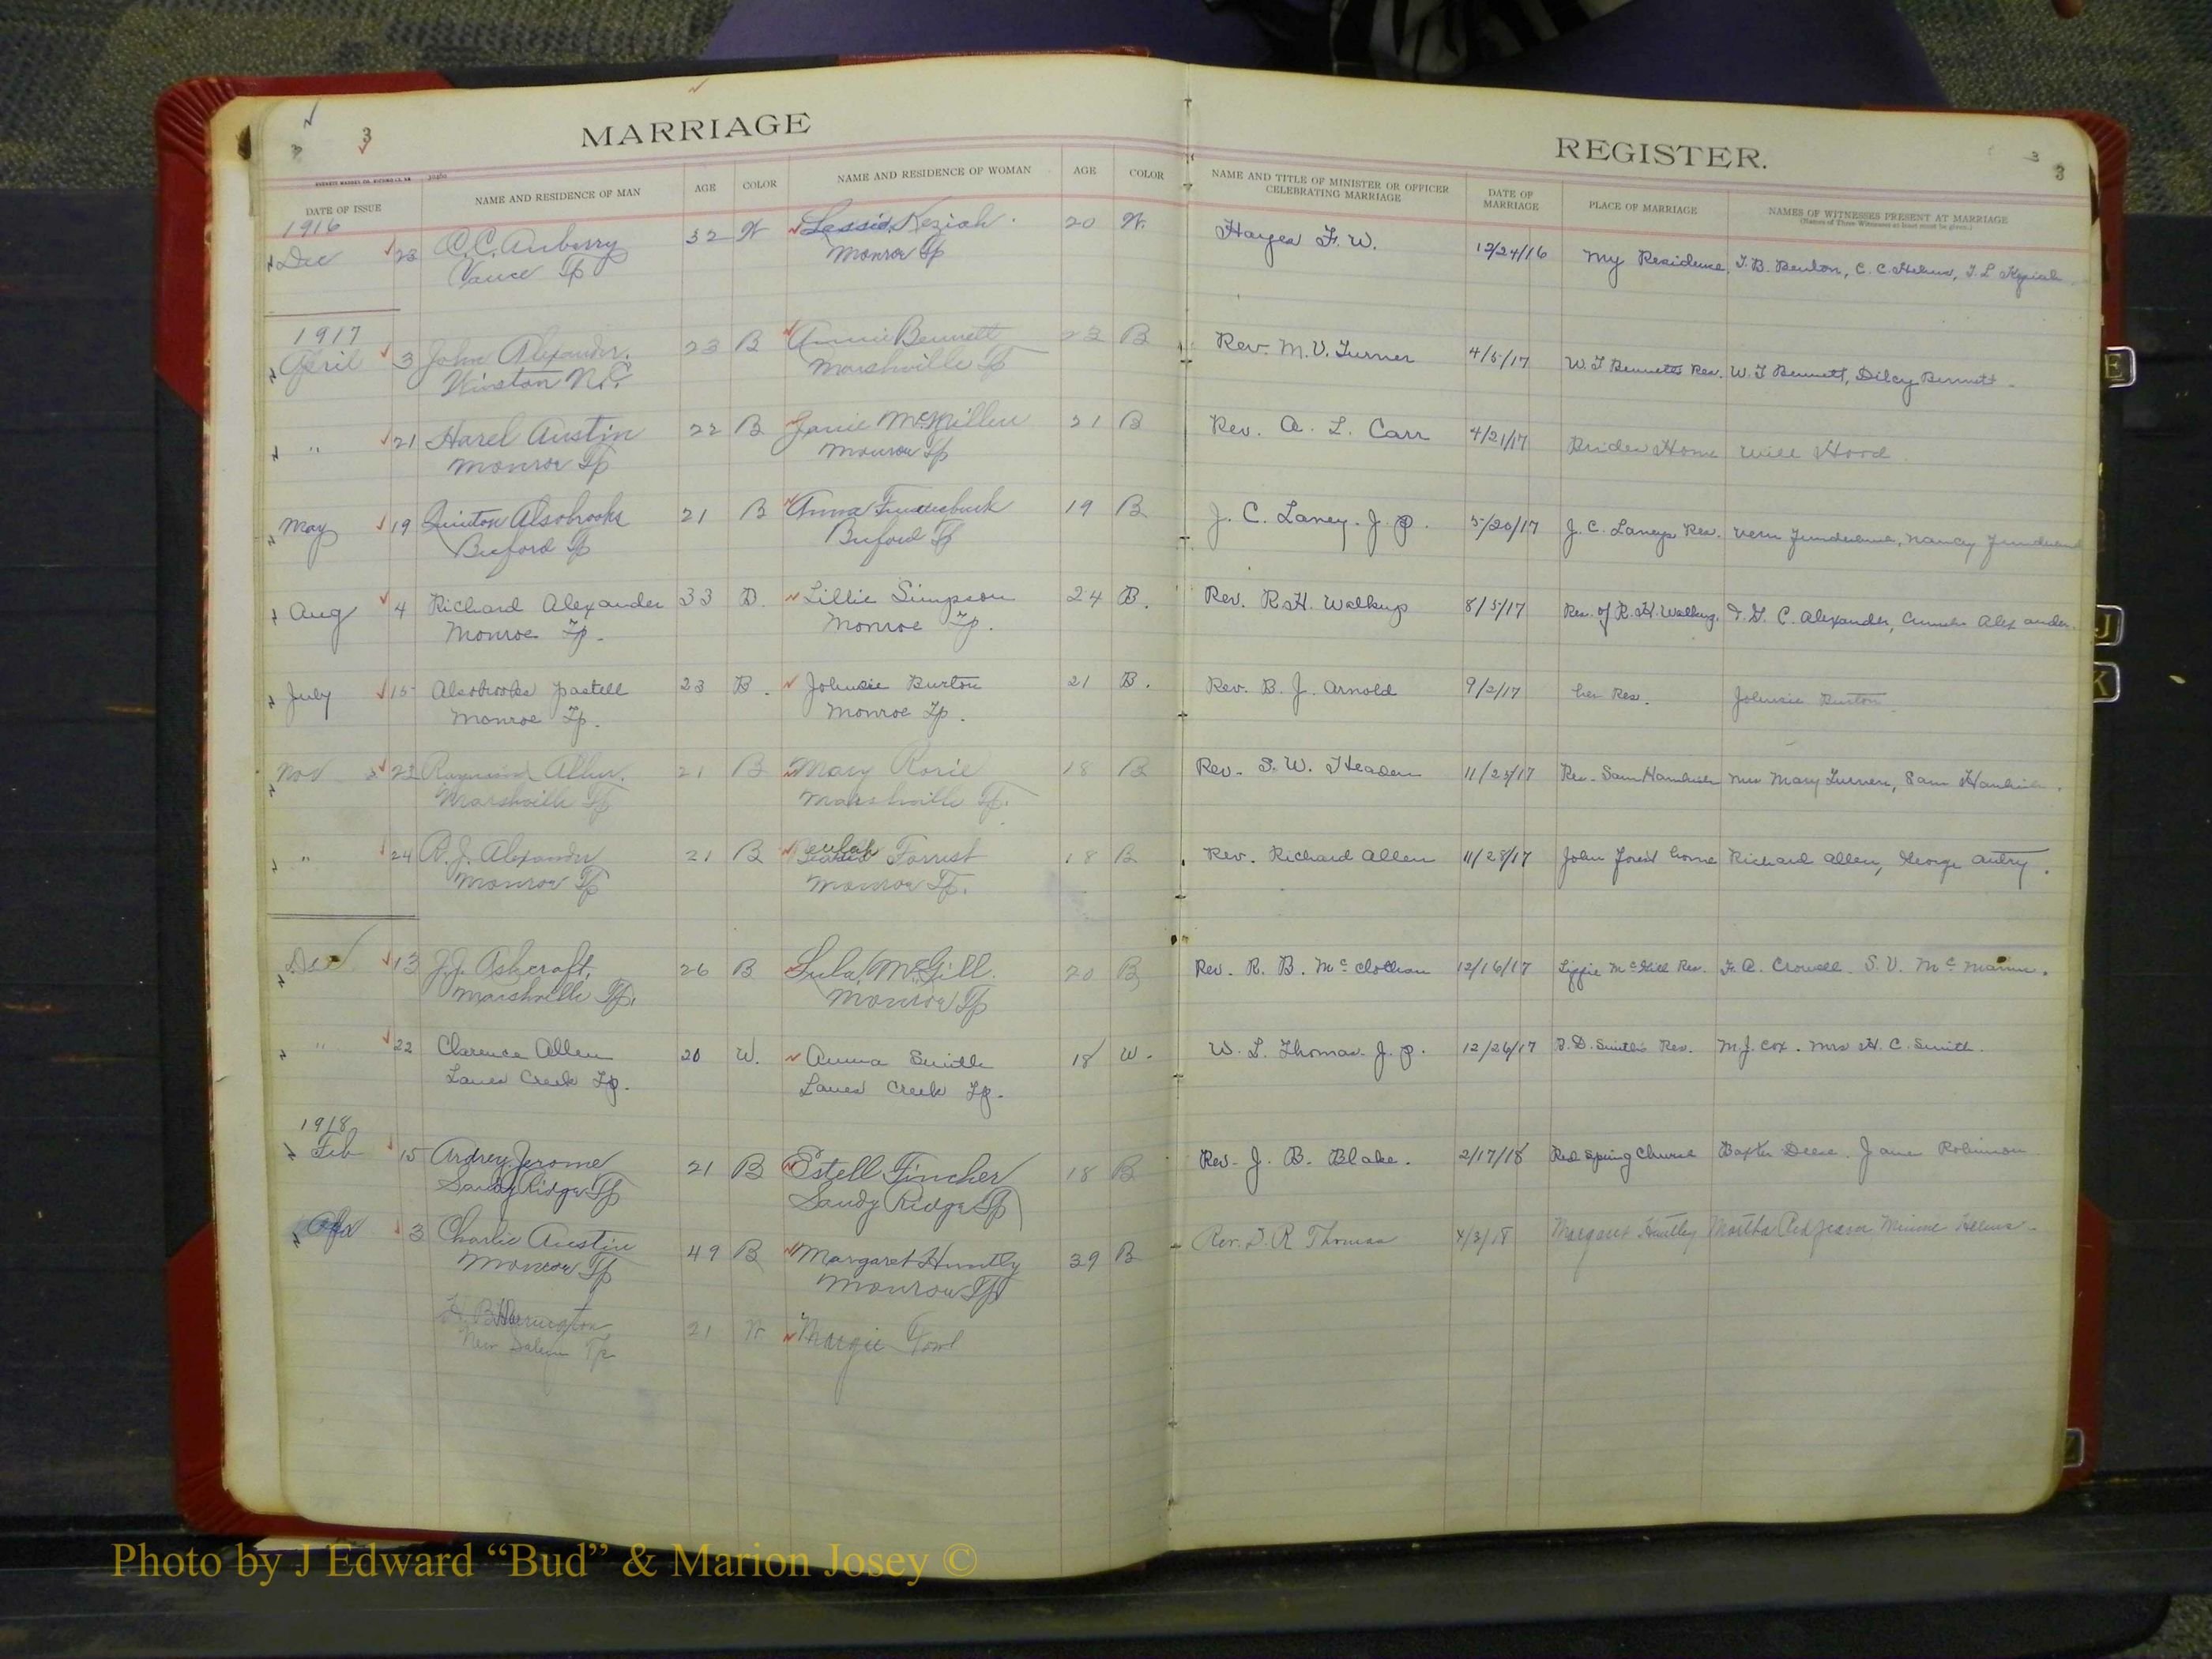 3
3
MARRIAGE
REGISTER.
3
3
DATE OF ISSUE
NAME AND RESIDENCE OF MAN
AGE
COLOR
NAME AND RESIDENCE OF WOMAN
AGE
COLOR
NAME AND TITLE OF MINISTER OR OFFICER
CELEBRATING MARRIAGE
DATE OF
MARRIAGE
PLACE OF MARRIAGE
NAMES OF WITNESSES PRESENT AT MARRIAGE
(Names of Three Witnesses at least must be given.)
1916
Dec 23 32 W Keziah 20 W. Hayes F. W. 12/24/16 My Residence, T. B. Benton, C. C. Helms, T. L.
Vance Tp Monroe Tp
1917
April 3 John Alexander. 23 B Annie Bennett 23 B Rev. M. V. Turner 4/5/17 W. T Bennetts Res. W. T Bennett, Dilcy Bennett
Winston N.C. Marshville Tp
" 21 Harel Austin 22 B Janie 21 B Rev. A. L. Carr 4/21/17 Brides Home Will Hood
Monroe Tp Monroe Tp
May 19 Quinton Alsobrooks 21 B Anna 19 B J. C. Laney. J. P. 5/20/17 J. C. Laneys Res. Nancy
Buford Tp Buford Tp
Aug 4 Richard Alexander 33 B. Lillie Simpson 24 B. Rev. R. H. Walkup 8/5/17 Res. of R. H. Walkup. C. Alexander, Alexander.
Monroe Tp. Monroe Tp.
July 15 Alsobrooks pastell 23 B. Johnsie Burton 21 B. Rev. B. J. Arnold 9/2/17 her Res. Johnsie Burton
Monroe Tp. Monroe Tp.
Nov 23 Raymond Allen. 21 B Mary Rorie 18 B Rev. S. W. Headen 11/23/17 Res. Sam Mary Turner, Sam
Marshville Tp Marshville Tp.
" 24 R. J. Alexander 21 B Beulah Forrest 18 B Rev. Richard Allen 11/28/17 John home Richard Allen, George Autry.
Monroe Tp Monroe Tp.
Dec 13 J. J. Ashcraft, 26 B Lula McGill. 20 B Rev. R. B. 12/16/17 Lizzie McGill Res. F. A. Crowell. S. V.
Marshville Tp. Monroe Tp
" 22 Clarence Allen 20 W. Anna Smith 18 W. W. L. Thomas. J. P. 12/26/17 B. D. Smith's Res. M. J. Cox. Mrs H. C. Smith.
Lanes Creek Tp. Lanes Creek Tp.
1918
Feb 15 Ardrey Jerome 21 B Estell Fincher 18 B Rev. J. B. Blake. 2/17/18 Red Spring Church Baxter Deese. Jane Robinson
Sandy Ridge Tp Sandy Ridge Tp
Apr 3 Charlie Austin 49 B Margaret Huntly 39 B Rev. D. R Thomas 4/3/18 Margaret Huntley Martha Minnie Helms
Monroe Tp Monroe Tp
21 W Margie
New Salem Tp
Photo by J Edward “Bud” & Marion Josey ©